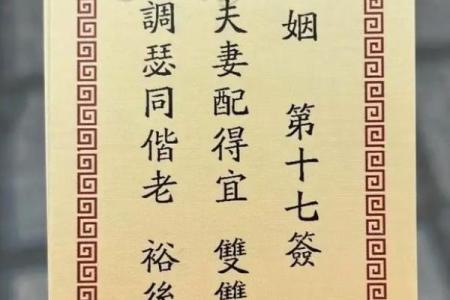 姻 第十七簽
夫妻配得宜 雙雙
調瑟同偕老 裕後